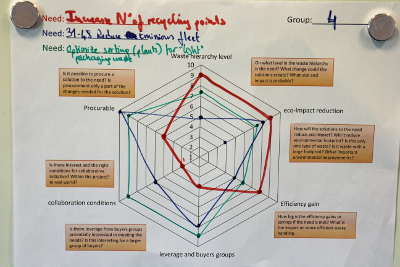 Need: Increase N° of recycling points
Group: 4
Need: Reduce emissions fleet
Need: Optimise sorting (plants) for "light" packaging waste
Waste hierarchy level
10
9
8
7
6
5
4
3
2
1
On what level in the waste hierarchy
is the need? What change could the
solutions create? What size and
impact is probable?
Is it possible to procure a
solution to the need? Is
procurement only a part of the
changes needed for the solution?
Procurable
eco-impact reduction
How will the solutions to the need
reduce eco impact? Will it reduce
environmental footprint? Is this only
one type of waste? Is it waste with a
large footprint? Other important
environmental improvements?
Is there interest and the right
conditions for collaborative
initiative? Within the project?
In real world?
collaboration conditions
Efficiency gain
How big is the efficiency gains or
savings if the need is met? What is
the impact on more efficient waste
handling
Is there leverage from buyers groups
potentially interested in meeting the
needs? Is this interesting for a larger
group of buyers?
leverage and buyers groups